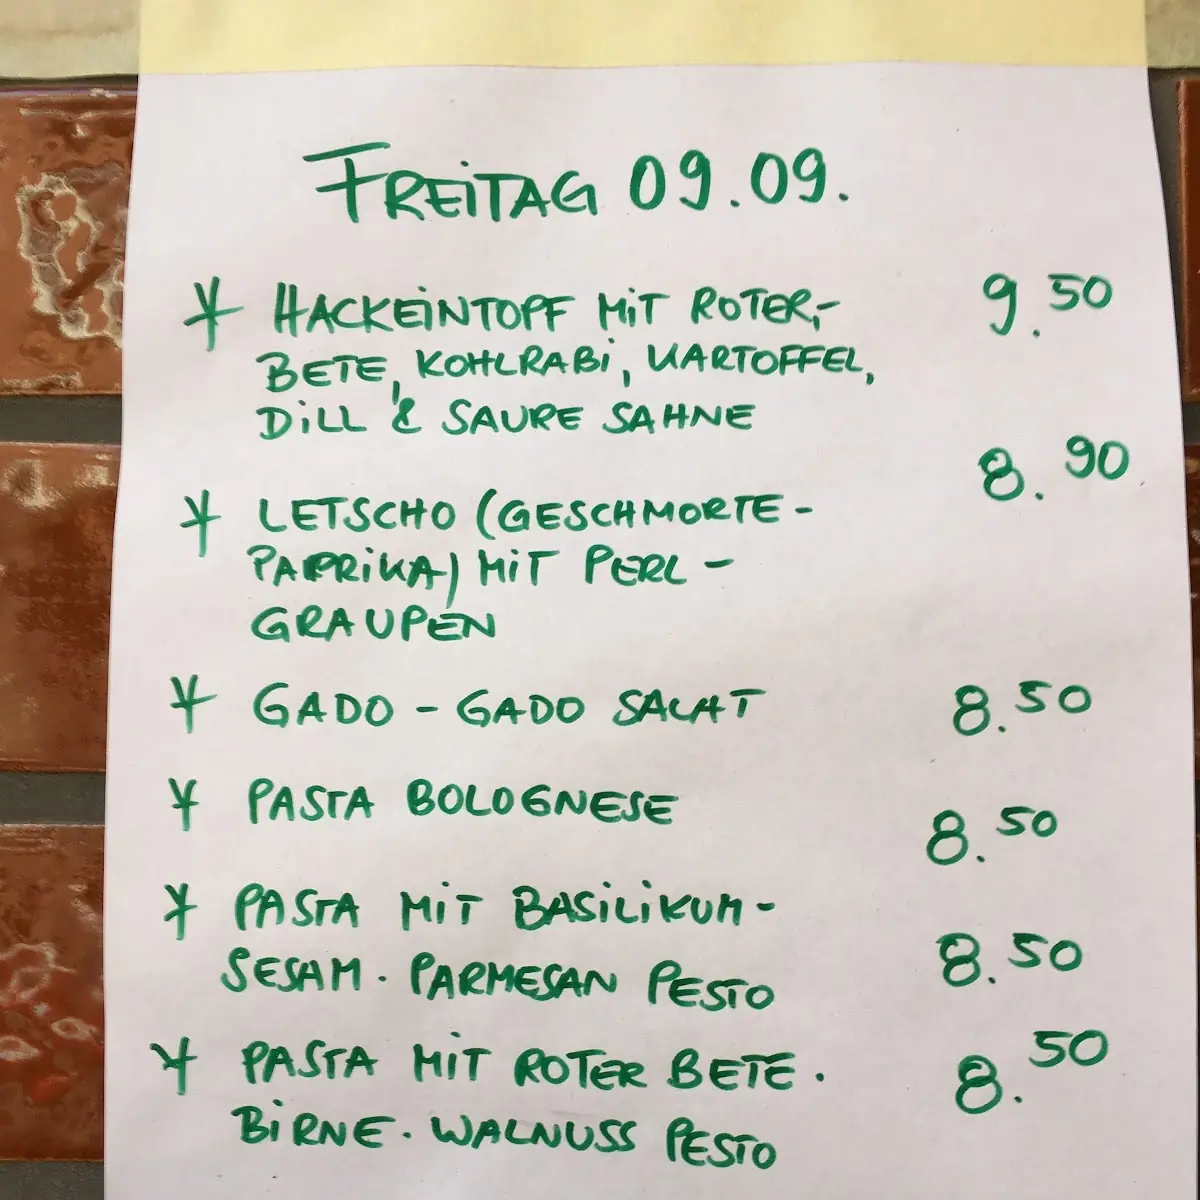 FREITAG 09.09.
HACKEINTOPF MIT ROTER,- 9.50
BETE, KOHLRABI, KARTOFFEL,
DILL & SAURE SAHNE
LETSCHO (GESCHMORTE- 8.90
PAPRIKA) MIT PERL-
GRAUPEN
GADO - GADO SALAT 8.50
PASTA BOLOGNESE 8.50
PASTA MIT BASILIKUM-
SESAM. PARMESAN PESTO 8.50
PASTA MIT ROTER BETE. 8.50
BIRNE. WALNUSS PESTO